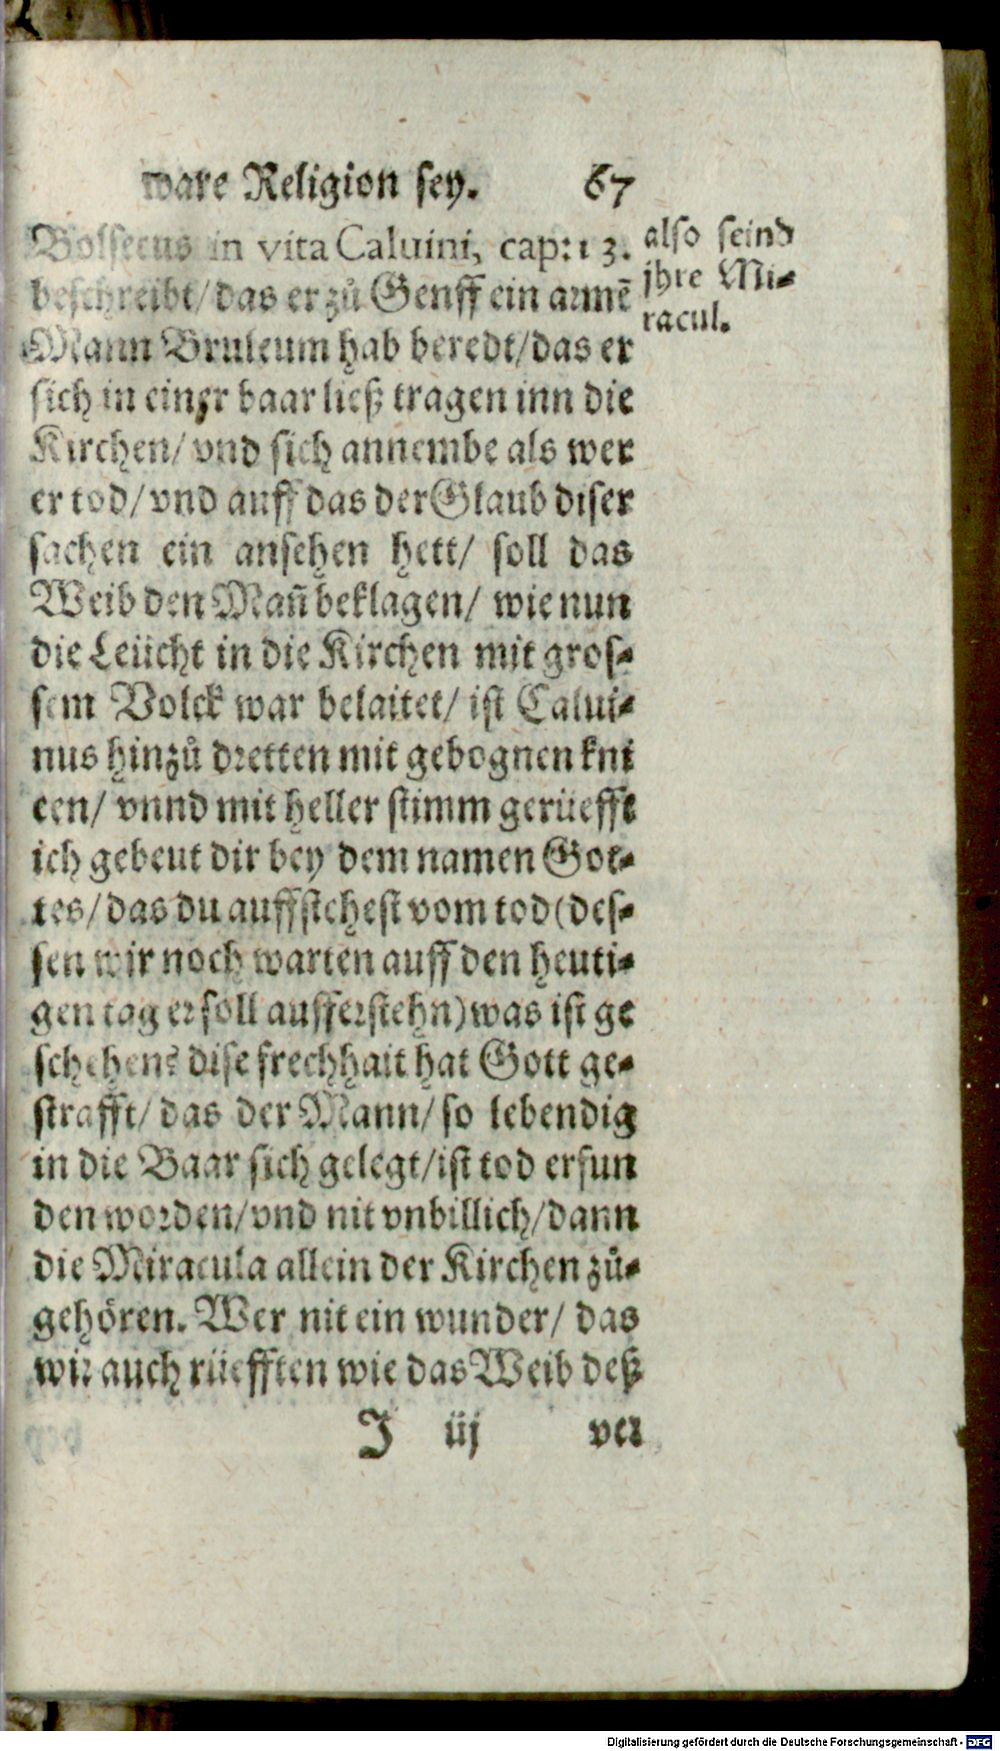 ware Religion sey. 67
Bolsecus in vita Caluini, cap: 13.
beschreibt/ das er zů Genff ein armē
Mann Bruleum hab beredt/ das er
sich in einer baar ließ tragen inn die
Kirchen/ vnd sich annembe als wer
er tod/ vnd auff das der Glaub diser
sachen ein ansehen hett/ soll das
Weib den Mañ beklagen/ wie nun
die Leücht in die Kirchen mit gros-
sem Volck war belaitet/ ist Calui-
nus hinzů dretten mit gebognen kni
een/ vnnd mit heller stimm gerüefft
ich gebeut dir bey dem namen Got-
tes/ das du auffstehest vom tod (des-
sen wir noch warten auff den heuti-
gen tag er soll aufferstehn) was ist ge
schehen? dise frechhait hat Gott ge-
strafft/ das der Mann/ so lebendig
in die Baar sich gelegt/ ist tod erfun
den worden/ vnd nit vnbillich/ dann
die Miracula allein der Kirchen zů-
gehören. Wer nit ein wunder/ das
wir auch rüefften wie das Weib deß
J iij ver
also seind
jhre Mi-
racul.
Digitalisierung gefördert durch die Deutsche Forschungsgemeinschaft - DFG